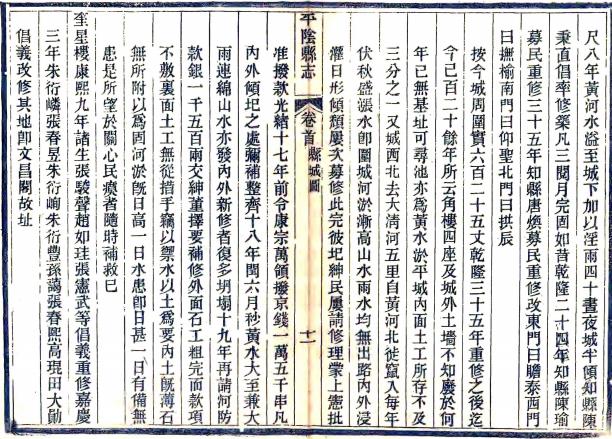 尺八年黃河水溢至城下加以淫雨四十晝夜城半傾知縣陳
秉直倡率修築凡三閱月完固如昔乾隆二十四年知縣陳瑜
募民重修三十五年知縣唐煥募民重修改東門曰瞻泰西門
曰撫榆南門曰仰聖北門曰拱辰
按今城周圍實六百二十五丈乾隆三十五年重修之後迄
今已百二十餘年所云角樓四座及城外土墻不知廢於何
年已無基址可尋池亦爲黃水於平城內面土工所存不及
三分之一又城西北去大清河五里自黃河北徙竄入每年
伏秋盛漲水卽圍城河淤漸高山水雨水均無出路內外浸
灌日形傾頹屢次募修此完彼圮紳民屢請修理業上憲批
平陰縣志
卷首
縣城圖
十一
准撥款光緒十七年前令康宗萬領撥京錢一萬五千串凡
內外傾圮之處彌補整齊十八年閏六月秒黃水大至兼大
雨連綿山水亦發內外新修者復多坍塌十九年再請河防
款銀一千五百兩交紳董擇要補修外面石工粗完而款項
不敷裏面土工無從措手竊以禦水以土爲要內土旣薄石
無所附以爲固河淤旣日高一日水患卽日甚一日有備無
患是所望於關心民瘼者隨時補救已
奎星樓康熙九年諸生張駿聲趙如珪張憲武等倡義重修嘉慶
三年朱衍嶙張春昱朱衍峋朱衍豐孫藹張春熙高琨田大勛
倡義改修其地卽文昌閣故址